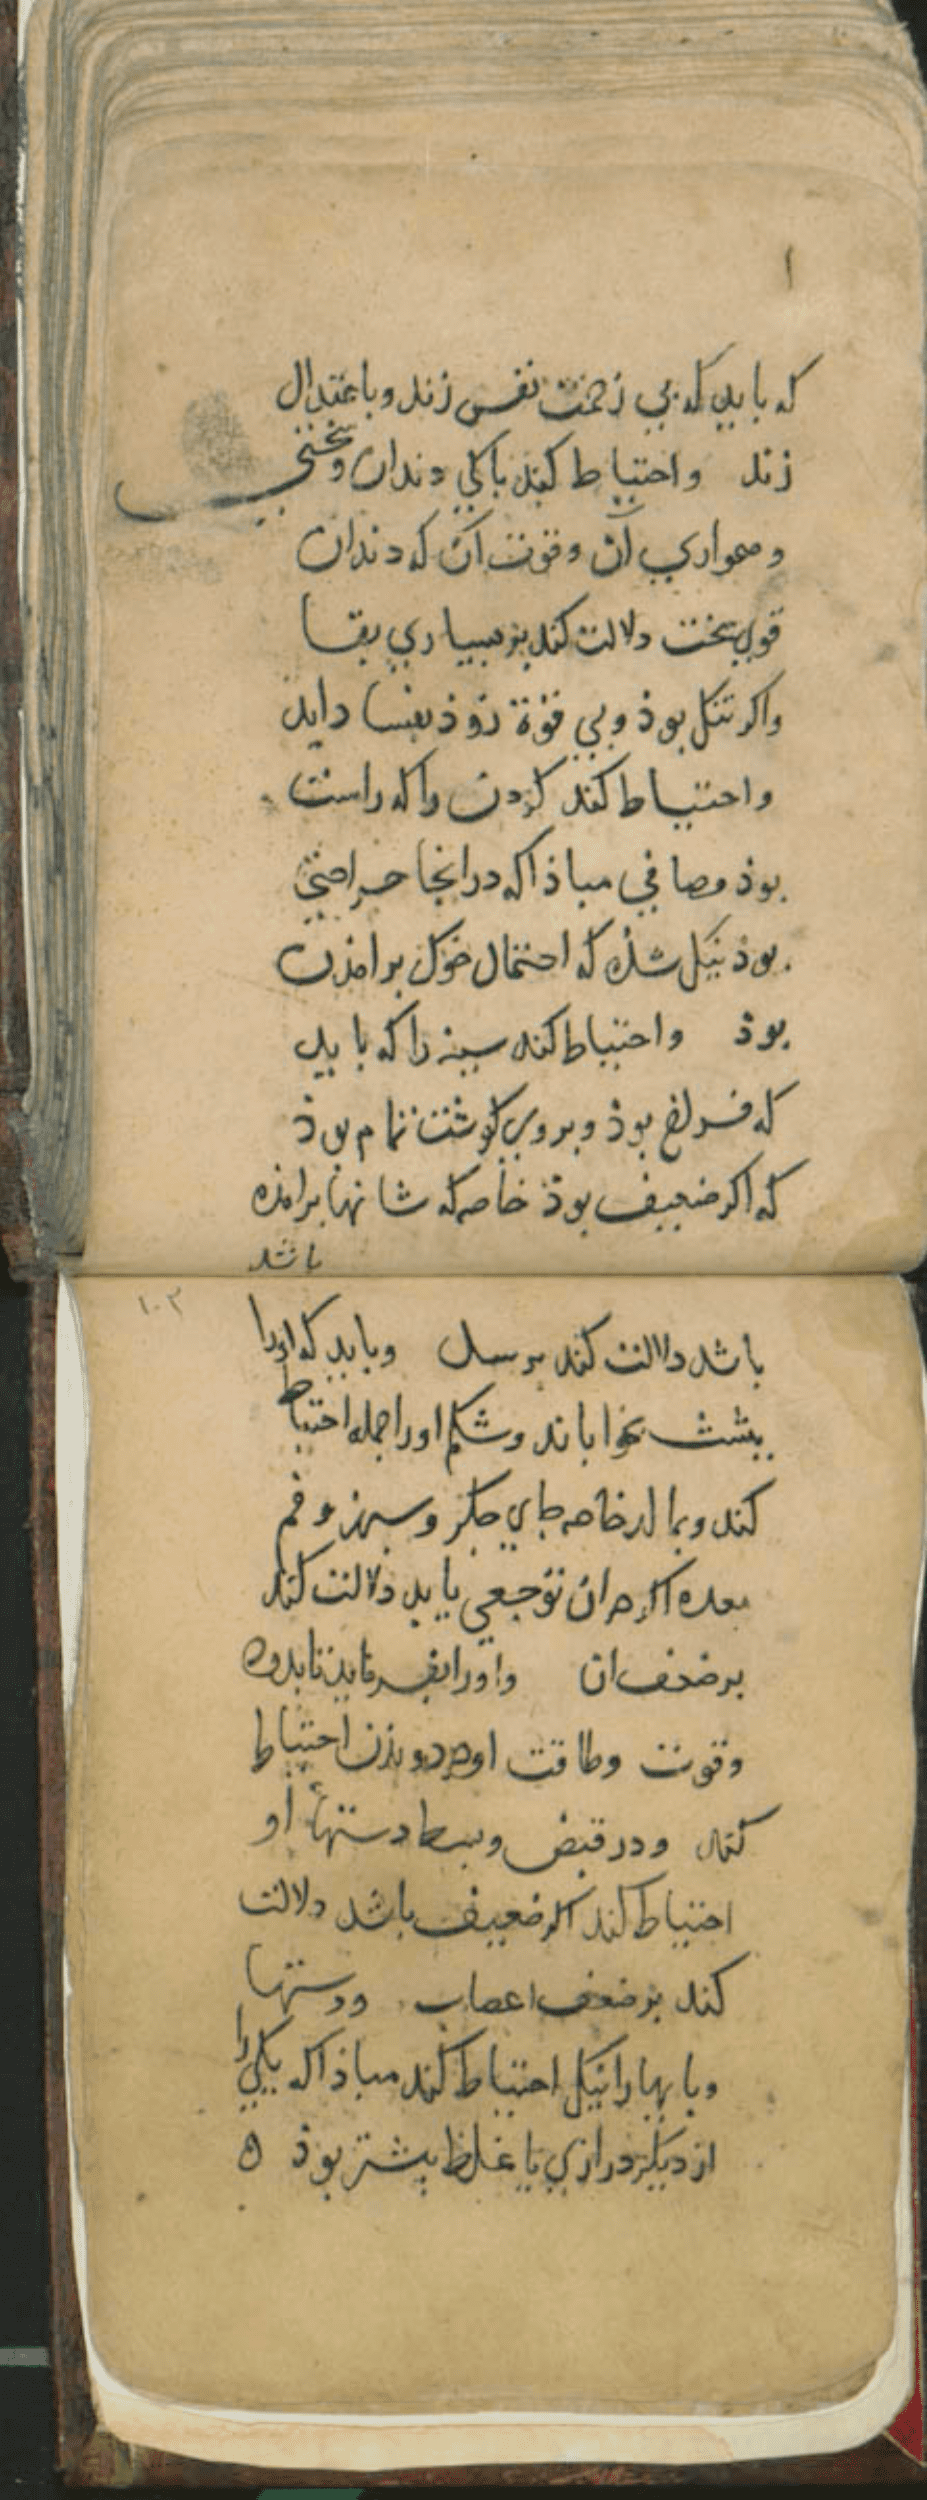 ۱
که باید که بی زحمت نفس زند و باعتدال
زند واحتیاط کند باکی دندان و سختی
وهمواری آن وقوت آن که دندان
قوی سخت دلالت کند بر بسیاری بقا
واکر تنک بوذ وبی قوة زوذ بفساد اید
واحتیاط کند کردن را که راست
بوذ وصافی مباذا که در انجا جراحتی
بوذ نیک شذه که احتمال خوک برامذن
بوذ واحتیاط کند سینه را که باید
که فراخ بوذ وبروی کوشت تمام بوذ
که اکر ضعیف بوذ خاصه که شانها برامذه
باشد
۱۰۲
باشد دلالت کند بر سل وباید که اورا
ببشت بخواباند وشکم اورا جمله احتیاط
کند وبمالد خاصه جای جکر وسبرز وفم
معده اکر در ان توجعی یابد دلالت کند
بر ضعف ان واورا بفرماید تا بدود
وقوت وطاقت او در دویذن احتیاط
کند ودر قبض وبسط دستهاء او
احتیاط کند اکر ضعیف باشد دلالت
کند بر ضعف اعصاب ودستها
وبایها را نیک احتیاط کند مباذا که یکی را
از دیکر درازی یا غلظ بیشتر بوذ ه